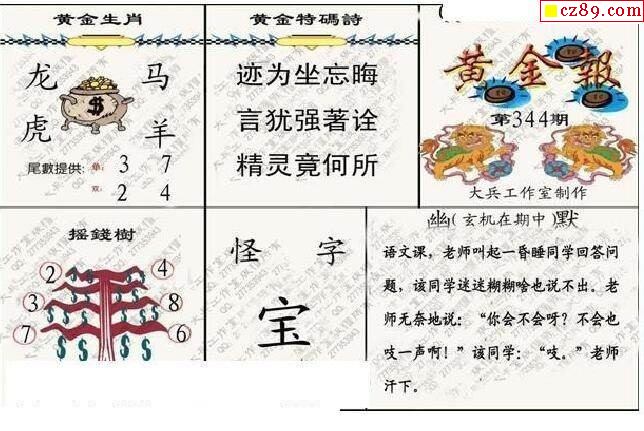 cz89.com
黄金生肖
龙 马
虎 羊
尾數提供: 單: 3 7
双: 2 4
黄金特碼詩
迹为坐忘晦
言犹强著诠
精灵竟何所
黄金報
第344期
大兵工作室制作
摇錢樹
2 4
3 8
7 6
怪 字
宝
幽(玄机在期中)默
语文课，老师叫起一昏睡同学回答问
题，该同学迷迷糊糊啥也说不出。老
师无奈地说：“你会不会呀？不会也
吱一声啊！”该同学：“吱。”老师
汗下。